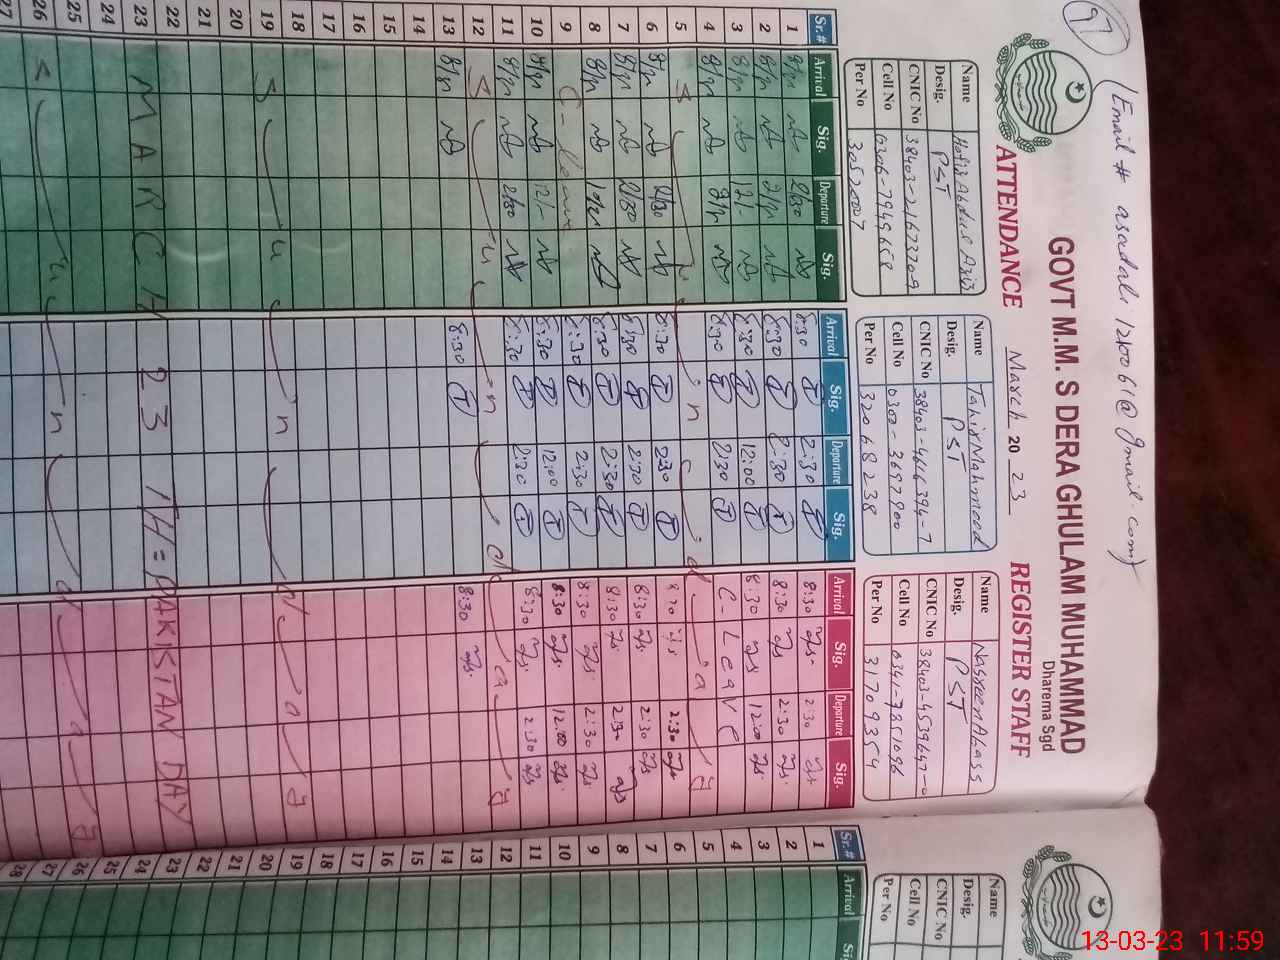 97
(Email # asadali121006@gmail.com)
GOVT M.M. S DERA GHULAM MUHAMMAD
Dharema Sgd
ATTENDANCE March 2023 REGISTER STAFF
Name Hafiz Abdul Aziz
Desig. PST
CNIC No 38403-2167370-9
Cell No 0306-7949658
Per No
Name Tahir Mahmood
Desig. PST
CNIC No 38403-4616394-7
Cell No 0300-3697800
Per No 32068238
Name Nasreen Abass
Desig. PST
CNIC No 38403-4539647-0
Cell No 0341-7851096
Per No 31709354
Sr.# Arrival Sig. Departure Sig. Arrival Sig. Departure Sig. Arrival Sig. Departure Sig.
1 2/30 8:30 2:30 8:30 2:30
2 8:30 2:30 8:30 2:30
3 12/- 8:30 12:00 8:30 12:00
4 8:30 2:30 C-Leave
5 S u n d a y
6 2/30 8:30 2:30 8:30 2:30
7 2/30 8:30 2:30 8:30 2:30
8 8:30 2:30 8:30 2:30
9 C-leave 8:30 2:30 8:30 2:30
10 12/- 8:30 12:00 8:30 12:00
11 2/30 8:30 2:30 8:30 2:30
12 S u n d a y
13 8:30 8:30
14
15
16
17
18
19 S u n d a y
20
21
22
23 MARCH 23 TH = PAKISTAN DAY
24
25
26 S u n d a y
27
Name
Desig.
CNIC No
Cell No
Per No
Sr.# Arrival
1
2
3
4
5
6
7
8
9
10
11
12
13
14
15
16
17
18
19
20
21
22
23
24
25
26
27
28
13-03-23 11:59